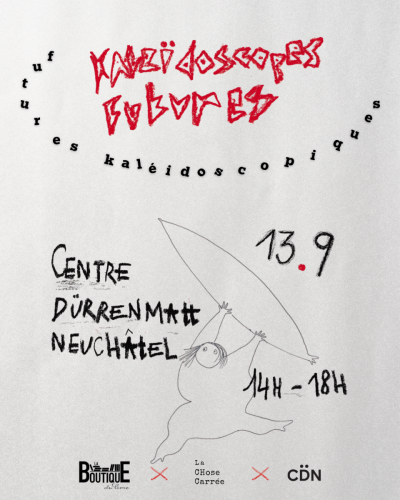 KALEÏDOSCOPES
FUTURES
futures kaléidoscopiques
13.9
CENTRE
DÜRRENMAtt
NEUCHÂtEL
14H - 18H
LA
BOUTIQUE
du Livre
La
CHose
Carrée
CDN